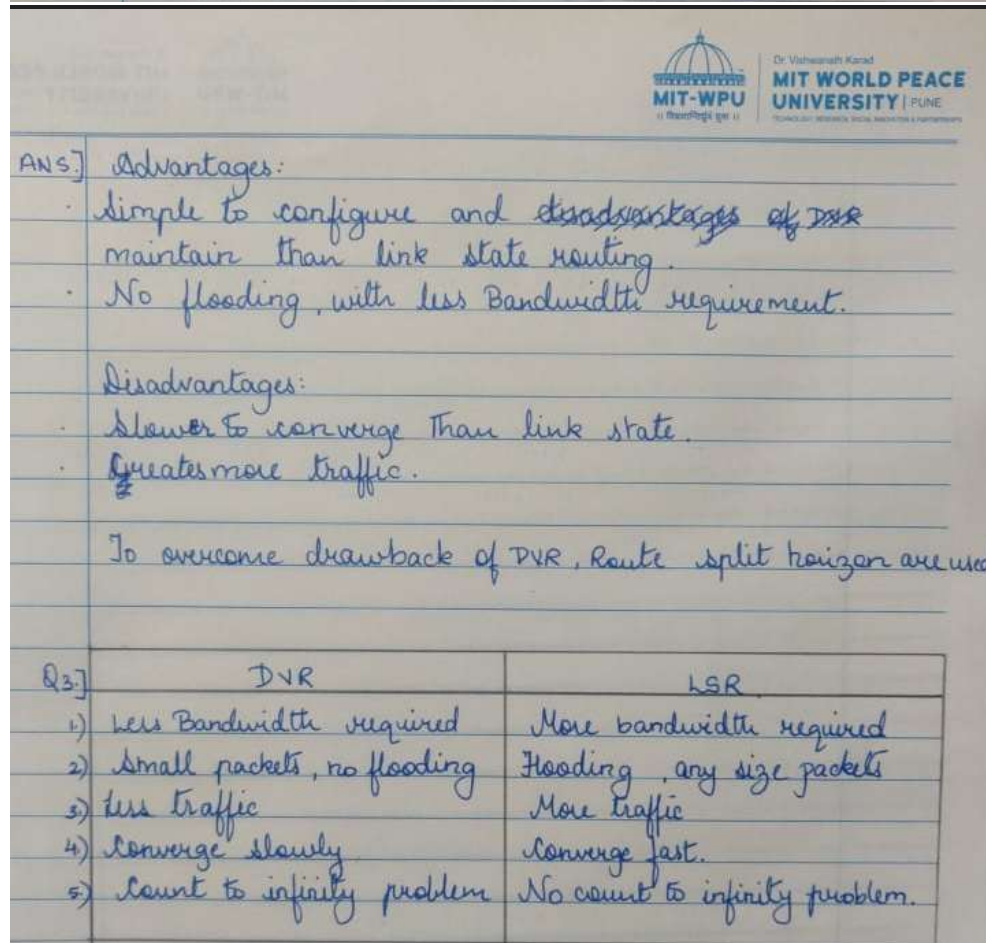 Dr. Vishwanath Karad
MIT WORLD PEACE
UNIVERSITY | PUNE
TECHNOLOGY, RESEARCH, SOCIAL INNOVATION & PARTNERSHIPS
MIT-WPU
ANS.] Advantages:
· Simple to configure and disadvantages of DVR
maintain than link state routing.
· No flooding, with less Bandwidth requirement.
Disadvantages:
· Slower to converge than link state.
· Creates more traffic.
To overcome drawback of DVR, Route split horizon are used
Q3.] DVR LSR
1.) Less Bandwidth required More bandwidth required
2) Small packets, no flooding Flooding, any size packets
3.) Less traffic More traffic
4) Converge slowly Converge fast.
5.) Count to infinity problem No count to infinity problem.